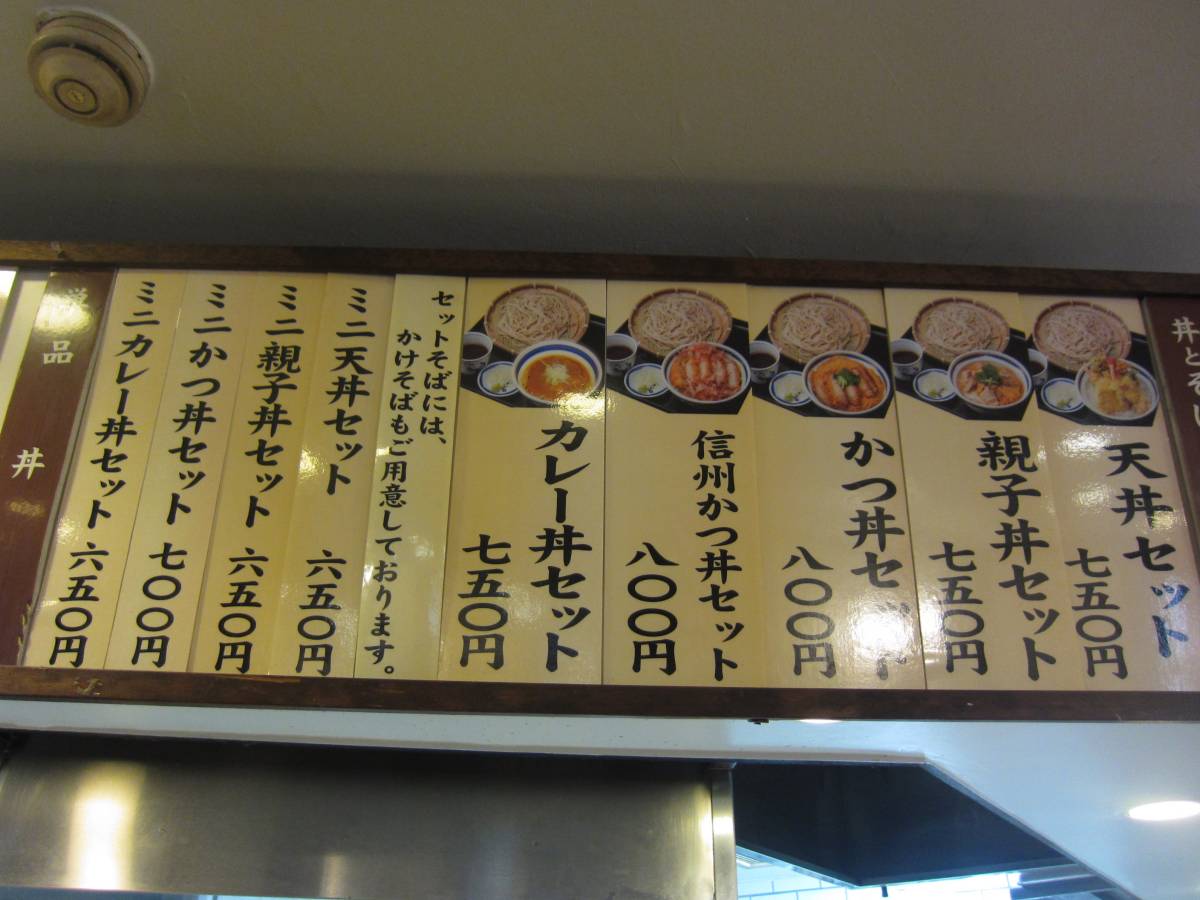 丼とそば
天丼セット
七五〇円
親子丼セット
七五〇円
かつ丼セット
八〇〇円
信州かつ丼セット
八〇〇円
カレー丼セット
七五〇円
セットそばには、
かけそばもご用意しております。
ミニ天丼セット 六五〇円
ミニ親子丼セット 六五〇円
ミニかつ丼セット 七〇〇円
ミニカレー丼セット 六五〇円
品
丼